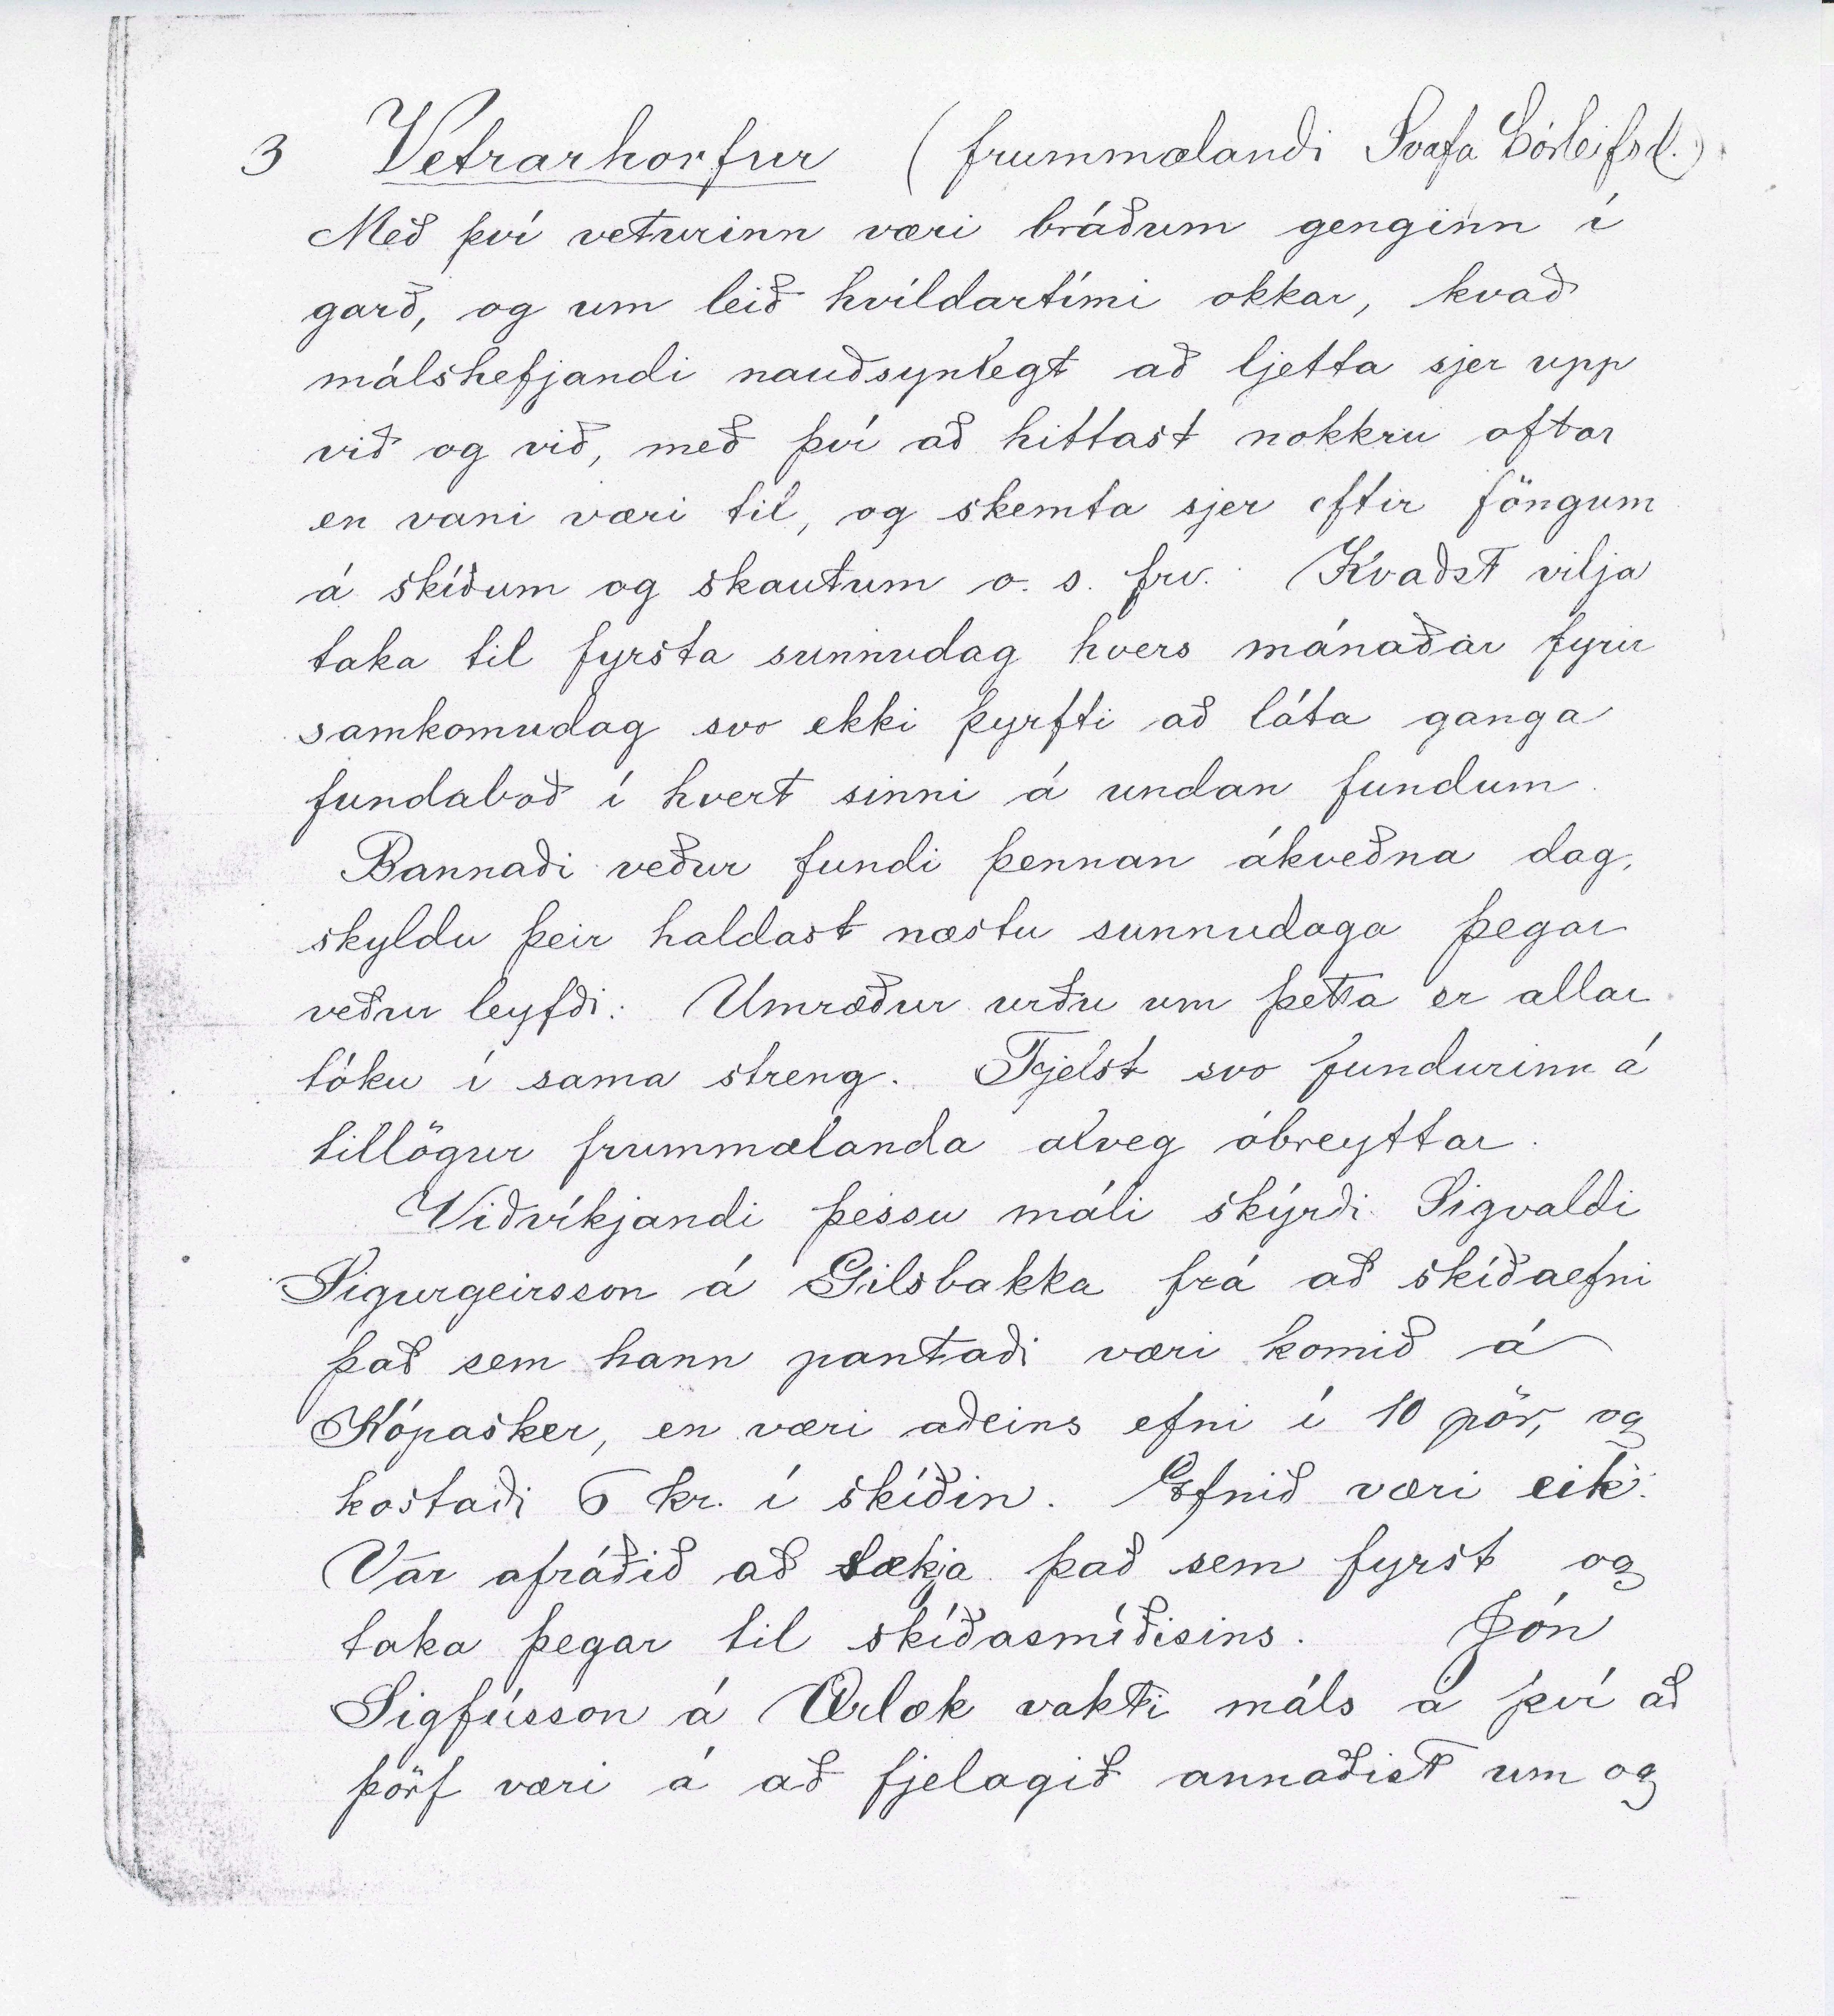 3 Vetrarhorfur (frummælandi Svafa Þórleifsd.)
Með því veturinn væri bráðum genginn í
garð, og um leið hvíldartími okkar, kvað
málshefjandi nauðsynlegt að ljetta sjer upp
við og við, með því að hittast nokkru oftar
en vani væri til, og skemta sjer eftir föngum
á skíðum og skautum o. s. frv. Kvaðst vilja
taka til fyrsta sunnudag hvers mánaðar fyrir
samkomudag svo ekki þyrfti að láta ganga
fundaboð í hvert sinni á undan fundum.
Bannaði veður fundi þennan ákveðna dag,
skyldu þeir haldast næstu sunnudaga þegar
veður leyfði. Umræður urðu um þetta er allar
tóku í sama streng. Fjelst svo fundurinn á
tillögur frummælanda alveg óbreyttar.
Viðvíkjandi þessu máli skýrði Sigvaldi
Sigurgeirsson á Gilsbakka frá að skíðaefni
það sem hann pantaði væri komið á
Kópasker, en væri aðeins efni í 10 pör, og
kostaði 6 kr. í skíðin. Efnið væri eik.
Var afráðið að sækja það sem fyrst og
taka þegar til skíðasmíðisins. Jón
Sigfússon á Ærlæk vakti máls á því að
þörf væri á að fjelagið annaðist um og